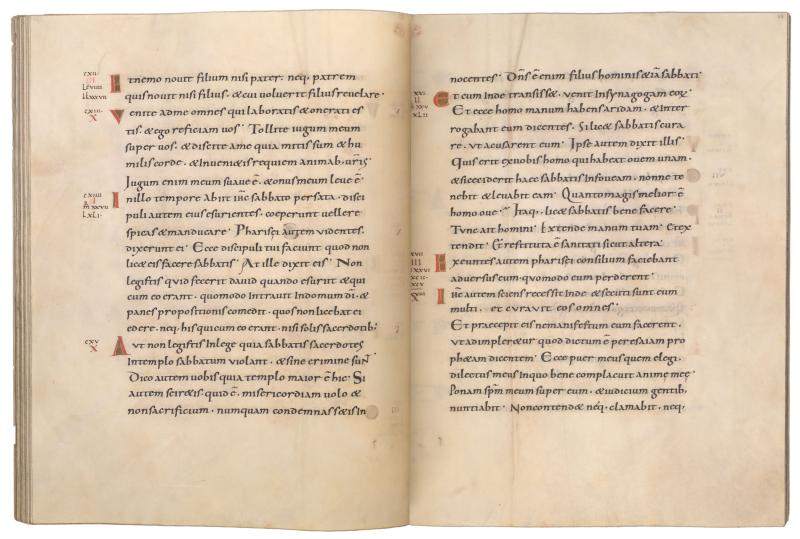 Et nemo novit filium nisi pater; neq; patrem
quis novit nisi filius, & cui voluerit filius revelare·
Venite ad me omnes qui laboratis & onerati es
tis, & ego reficiam vos· Tollite iugum meum
super vos, & discite a me quia mitis sum & hu
milis corde, & invenietis requiem animab; vr̄is
Jugum enim meum suave ē, & onus meum leve ē·
In illo tempore abiit ih̄c sabbato per sata, disci
puli autem eius esurientes, coeperunt vellere
spicas & manducare· Pharisei autem videntes,
dixerunt ei· Ecce discipuli tui faciunt quod non
lic& eis facere sabbatis· At ille dixit eis· Non
legistis quid fecerit david quando esuriit & qui
cum eo erant· quomodo intravit in domum dī, &
panes propositionis comedit, quos non liceba& ei
edere, neq; his qui cum eo erant· nisi solis sacerdotib;
Aut non legistis in lege quia sabbatis sacerdotes
in templo sabbatum violant, & sine crimine sunt
Dico autem vobis quia templo maior ē hic· Si
autem scir&is, quid ē, misericordiam volo &
non sacrificium, numquam condemnass&is in
nocentes· Dn̄s ē enim filius hominis &iā sabbati·
Et cum inde transiss&, venit in synagogam eor·
Et ecce homo manum habens aridam, & inter
rogabant eum dicentes· Si lic& sabbatis cura
re, ut accusarent eum· Ipse autem dixit illis·
Quis erit ex vobis homo qui habeat ovem unam,
& si ceciderit haec sabbatis in foveam, nonne te
nebit & levabit eam· Quanto magis melior ē
homo ove· Itaq; lic& sabbatis bene facere
Tunc ait homini· Extende manum tuam· Et ex
tendit· Et restituta ē sanitati sicut altera
Exeuntes autem pharisei consilium faciebant
adversus eum, quomodo eum perderent·
Ih̄c autem sciens recessit inde & secuti sunt eum
multi, et curavit eos omnes·
Et praecepit eis ne manifestum eum facerent,
ut adimpler&ur quod dictum ē per esaiam pro
ph&am dicentem· Ecce puer meus quem elegi,
dilectus meus in quo bene complacuit animę meę·
Ponam sp̄m meum super eum, & iudicium gentib;
nuntiabit· Non contend& neq; clamabit, neq;